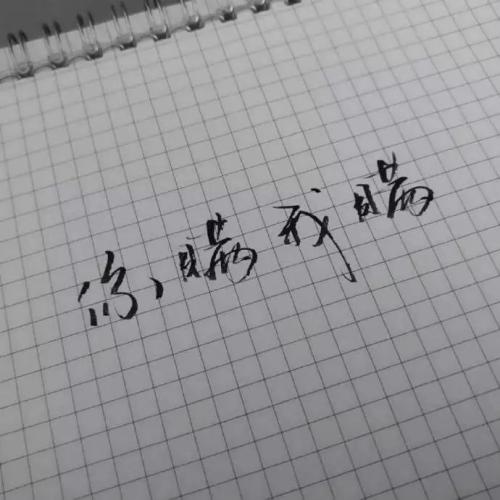 你瞒我瞒